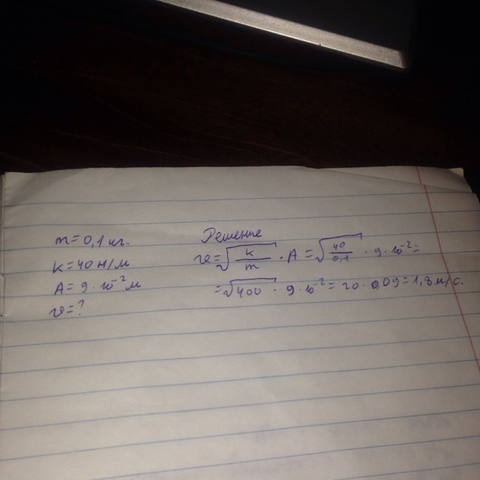 m = 0,1 кг.
k = 40 н/м
A = 9 · 10⁻² м
v = ?
Решение
v = √(k/m) · A = √(40/0,1) · 9 · 10⁻² =
= √400 · 9 · 10⁻² = 20 · 0,09 = 1,8 м/с.